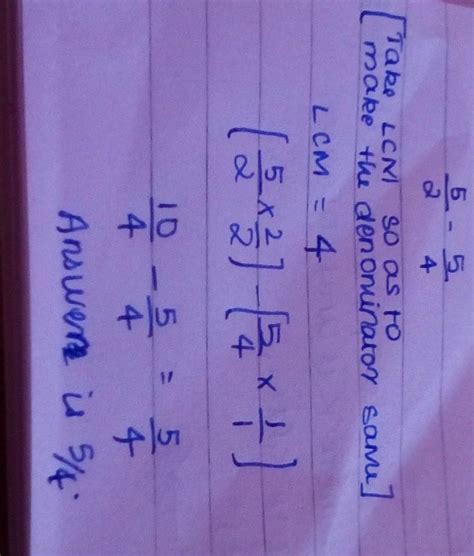 5/2 - 5/4
[Take LCM so as to
make the denominator same]
LCM = 4
[5/2 × 2/2] - [5/4 × 1/1]
10/4 - 5/4 = 5/4
Answer is 5/4.